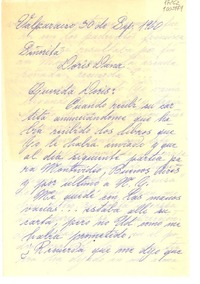 Valparaíso, 30 de Sep. 1960
Señorita
Doris Dana
Querida Doris:
Cuando recibí su car
ta anunciándome que ha
bía recibido los libros que
yo le había enviado y que
al día siguiente partía pa
ra Montevideo, Buenos Aires
y por último a N. Y.
Me quedé con las manos
vacías... estaba allí su
carta, pero no Ud. como me
había prometido.
¿Recuerda que me dijo que